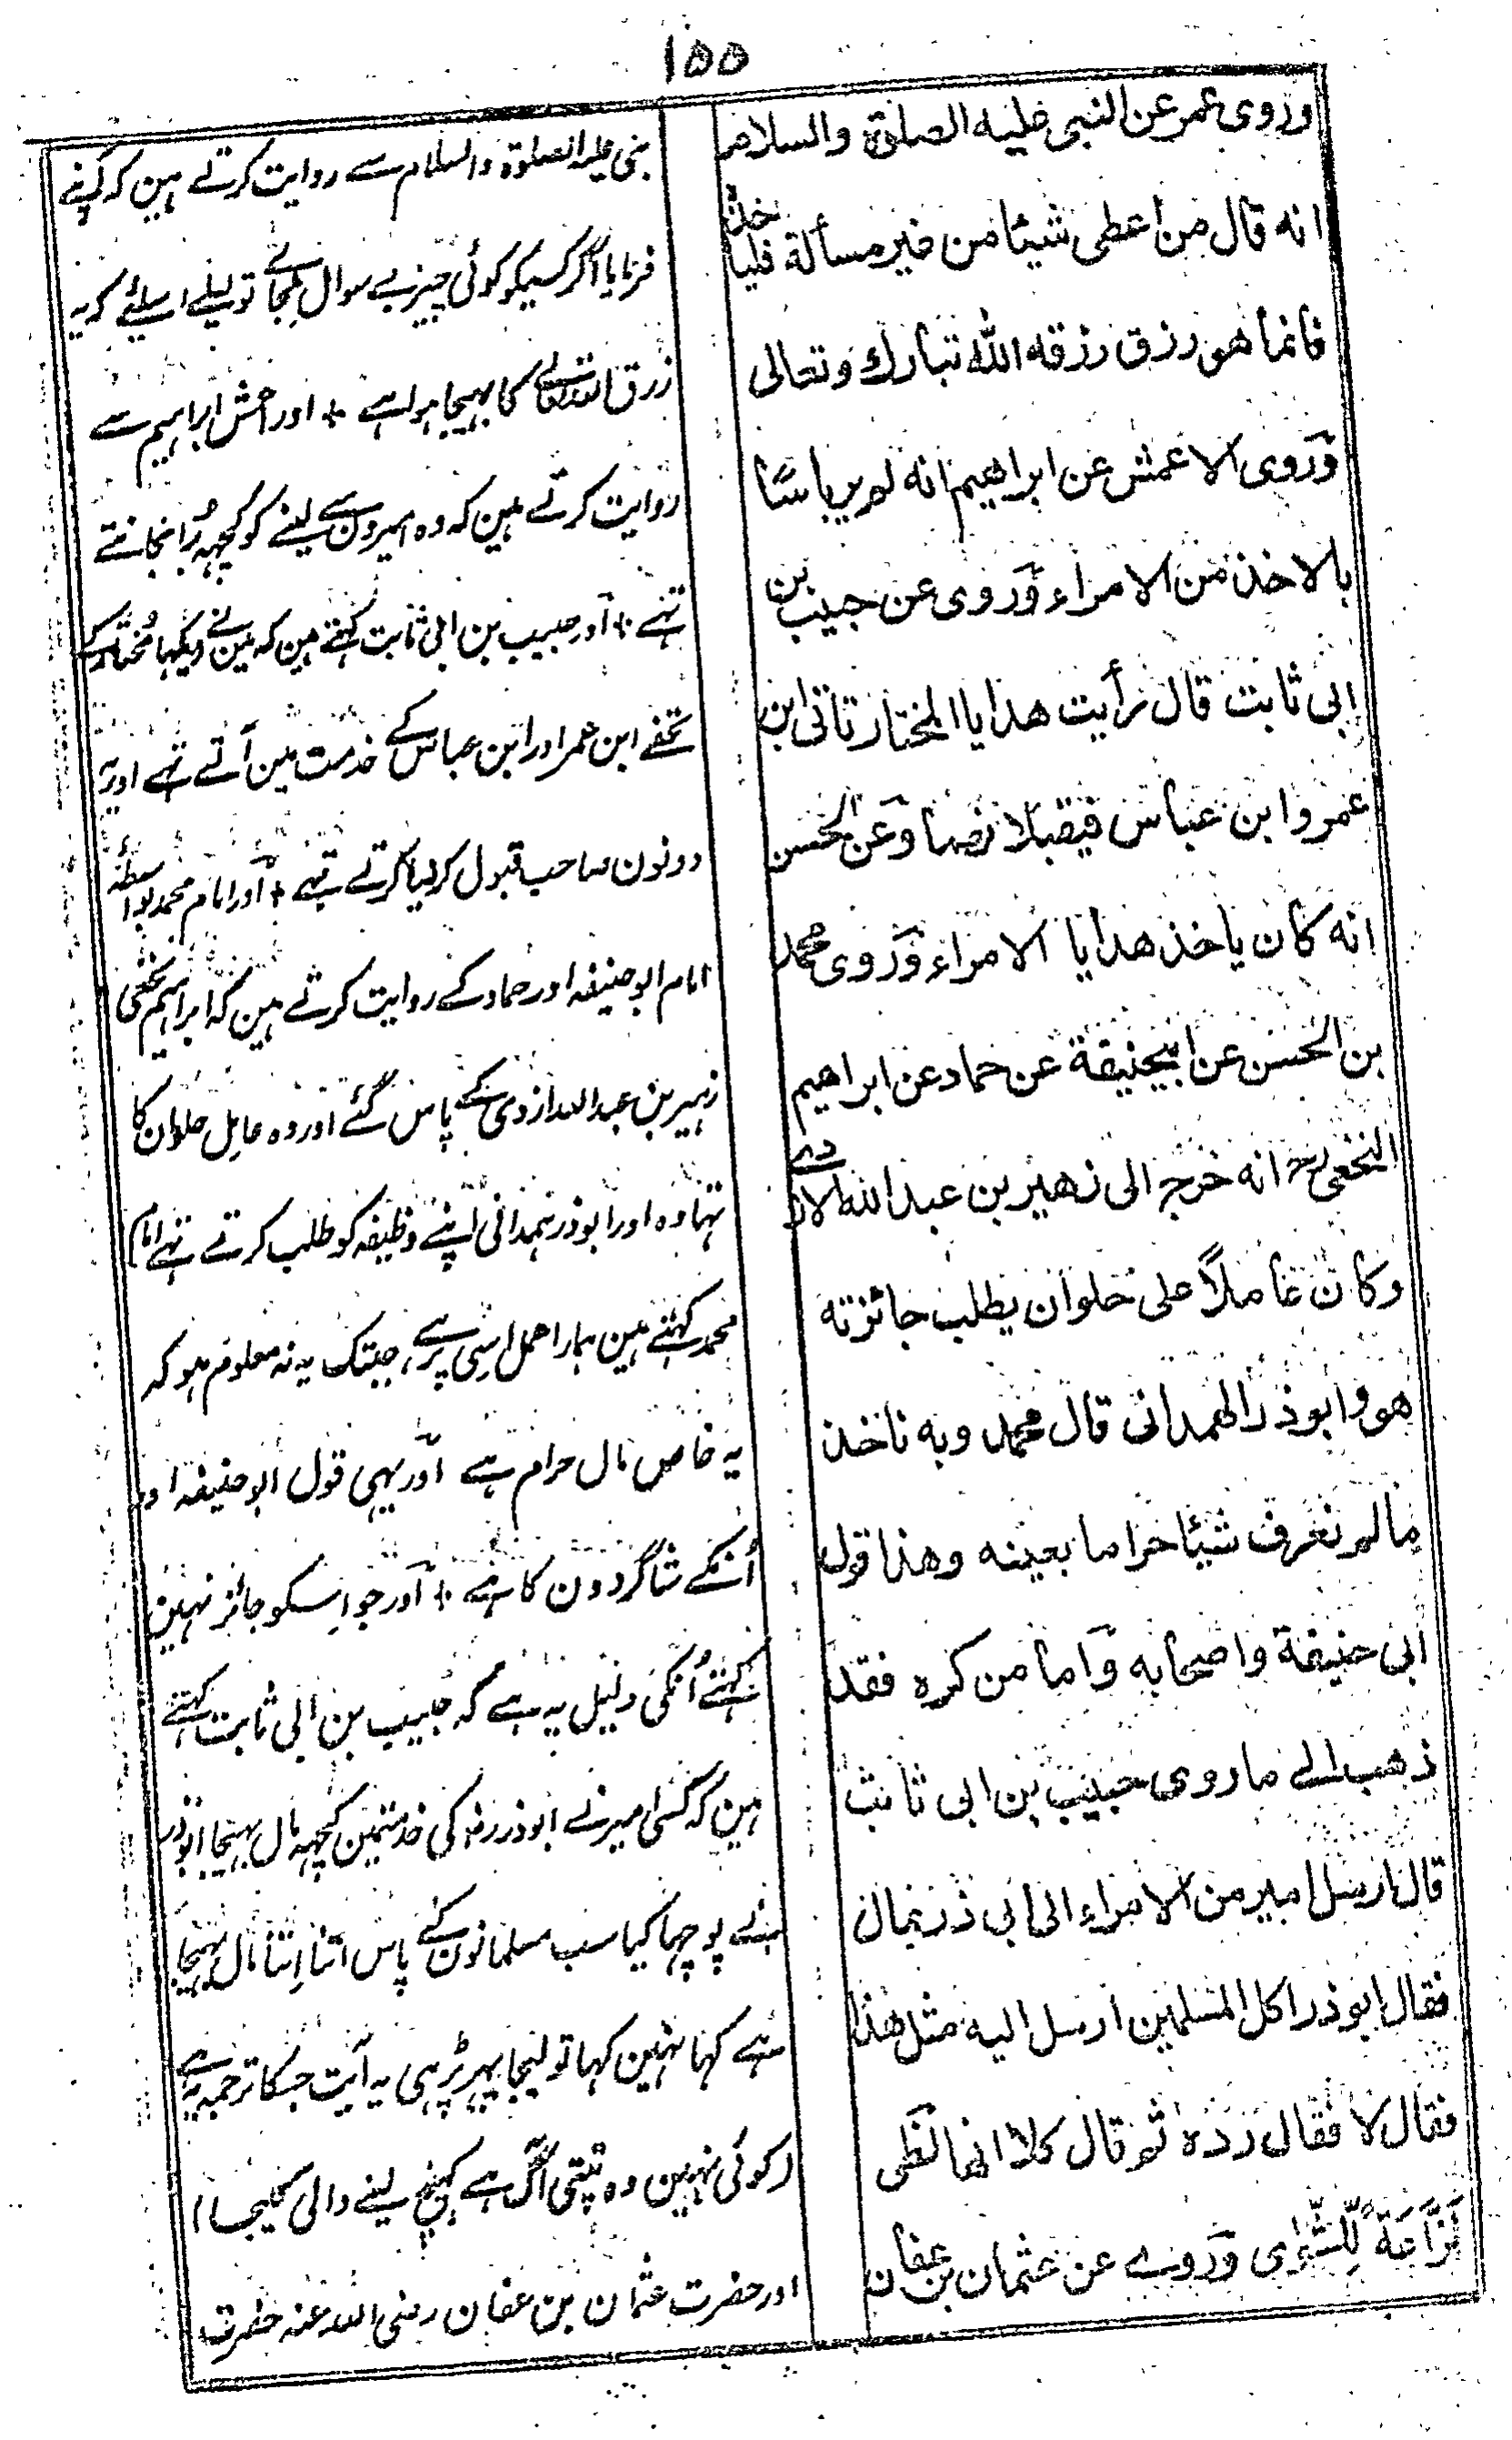 ١٥٥
وروى عمر عن النبى عليه الصلوة والسلام
انه قال من اعطى شيئا من غير مسألة فليأخذه
فانما هو رزق رزقه الله تبارك وتعالى
وروى الاعمش عن ابراهيم انه لم ير باسًا
بالاخذ من الامراء وروى عن حبيب بن
ابى ثابت قال رأيت هدايا المختار تاتى ابن
عمر وابن عباس فيقبلانها وعن الحسن
انه كان ياخذ هدايا الامراء وروى محمد
بن الحسن عن ابيحنيفة عن حماد عن ابراهيم
النخعى رح انه خرج الى زهير بن عبد الله الازدے
وكان عاملاً على حلوان يطلب جائزته
هو وابو ذر الهمدانى قال محمد وبه ناخذ
مالم نعرف شيئا حراما بعينه وهذا قول
ابى حنيفة واصحابه واما من كره فقد
ذهب الے ماروى حبيب بن ابى ثابت
قال ارسل امير من الامراء الى ابى ذر بمال
فقال ابو ذر اكل المسلمين ارسل اليه مثل هذا
فقال لا فقال رده ثم قال كلا انها لظى
نَزَّاعَةً لِّلشَّوٰى وروے عن عثمان بن عفان
نبی علیہ الصلوۃ والسلام سے روایت کرتے ہین کہ آپنے
فرمایا اگر کسیکو کوئی چیز بے سوال ملجاے تو لیلے اسلئے کہ یہ
رزق اللہ تعالے کا بہیجا ہوا ہے + اور اعمش ابراہیم سے
روایت کرتے ہین کہ وہ امیرون سے لینے کو کچہہ بُرا نجانتے
تہے + اور حبیب بن ابی ثابت کہتے ہین کہ مینے دیکہا مختار کے
تحفے ابن عمر اور ابن عباس کے خدمت مین آتے تہے اور یہ
دونون صاحب قبول کرلیا کرتے تہے + اور امام محمد بواسطہ
امام ابو حنیفہ اور حماد کے روایت کرتے ہین کہ ابراہیم نخعی
زہیر بن عبد اللہ ازدی کے پاس گئے اور وہ عامِل حلوان کا
تہا وہ اور ابوذر ہمدانی اپنے وظیفہ کو طلب کرتے تہے امام
محمد کہتے ہین ہمارا عمل اسِی پر ہے، جبتک یہ نہ معلوم ہو کہ
یہ خاص مال حرام ہے اور یہی قول ابو حنیفہ اور
اُنکے شاگردون کا ہے + اور جو اِسکو جائز نہین
کہتے اُنکی دلیل یہ ہے کہ حبیب بن ابی ثابت کہتے
ہین کہ کسی امیر نے ابوذر رضہ کی خدمتمین کچہہ مال بہیجا ابوذر
نے پوچہا کیا سب مسلمانون کے پاس اتنا اِتنا مال بہیجا
ہے کہا نہین کہا تو لیجا پہر پڑہی یہ آیت جسکا ترجمہ یہ ہے
(کوئی نہین وہ تپتی آگ ہے کہینچ لینے والی کلیجا)
اور حضرت عثمان بن عفان رضی اللہ عنہ حضرت